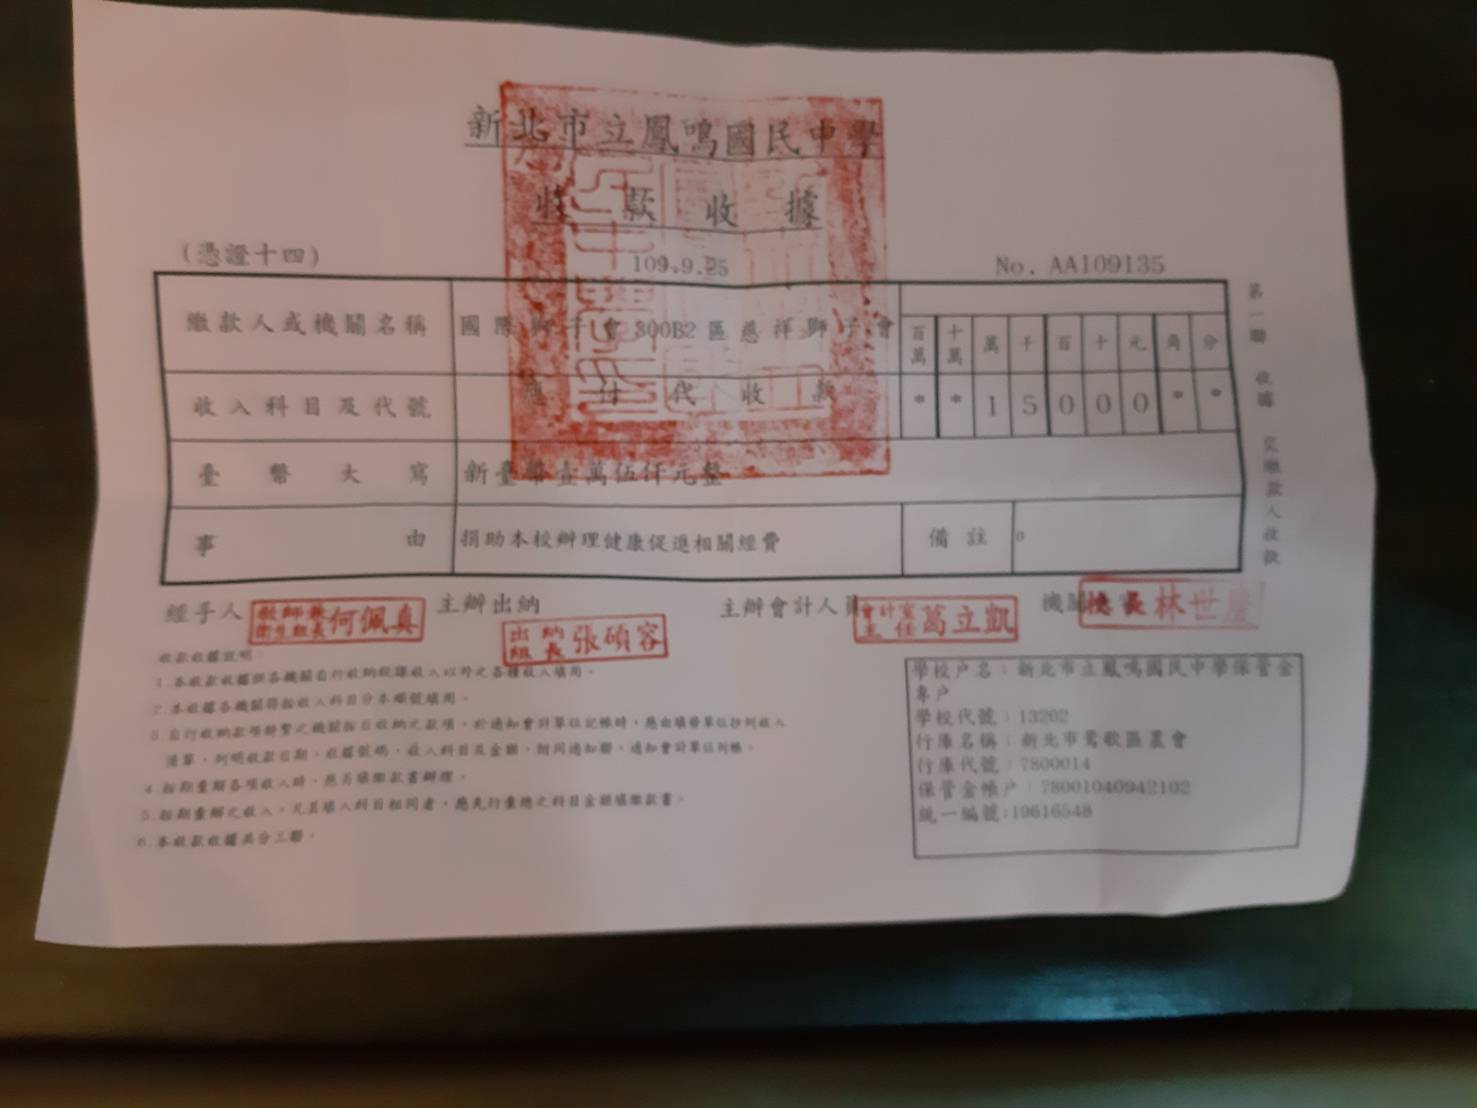 新北市立鳳鳴國民中學
收款收據
(憑證十四)
109.9.25
No. AA109135
繳款人或機關名稱
國際獅子會300B2區慈祥獅子會
百萬 十萬 萬 千 百 十 元 角 分
收入科目及代號
應付代收款
* * 1 5 0 0 0 * *
臺幣大寫
新臺幣壹萬伍仟元整
事由
捐助本校辦理健康促進相關經費
備註
0
第一聯 收據 交繳款人收執
經手人
教師兼衛生組長何佩真
主辦出納
出納組長張碩容
主辦會計人員
會計室主任葛立凱
機關
校長林世慶
收款收據說明:
1.本收款收據供各機關自行收納稅課收入以外之各種收入填用。
2.本收據各機關得按收入科目分本順號填用。
3.自行收納款項特繁之機關按日收納之款項,於通知會計單位記帳時,應由填發單位抄列收入
清單,列明收款日期、收據號碼、收入科目及金額,附同通知聯,通知會計單位列帳。
4.按期彙解各項收入時,應另填繳款書辦理。
5.按期彙解之收入,凡其填入科目相同者,應先行彙總之科目金額填繳款書。
6.本收款收據共分三聯。
學校戶名:新北市立鳳鳴國民中學保管金
專戶
學校代號:13202
行庫名稱:新北市鶯歌區農會
行庫代號:7800014
保管金帳戶:78001040942102
統一編號:19616548